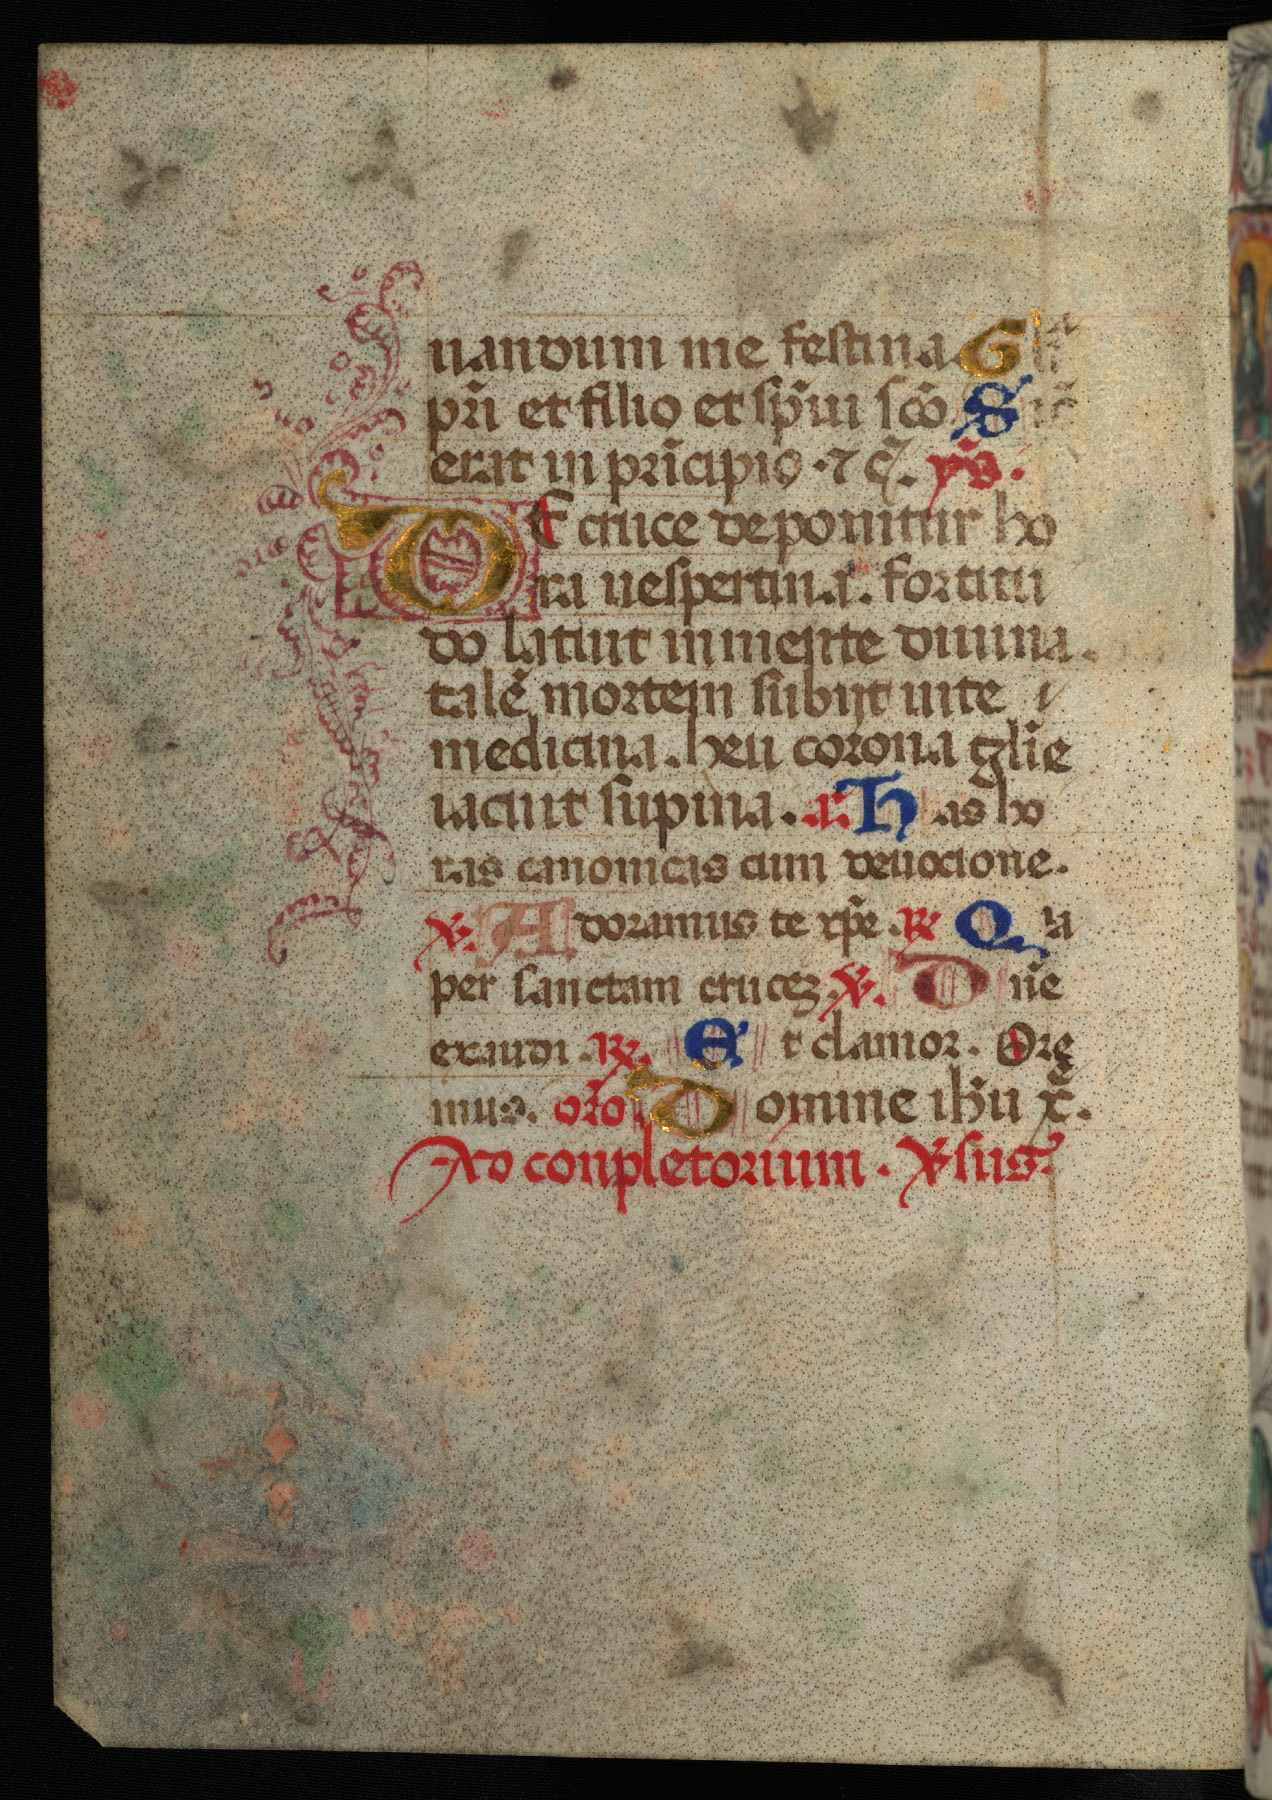 uandum me festina. Gl'a
pr̄i et filio et sp̄ui sc̄o Sic̄
erat in prīcipio · ⁊ c̄. ẏmb.
DE cruce deponitur ho
ra uespertina. fortitu
do latuit in mente diuina.
talē mortem subijt uite
medicina. heu corona gl̄ie
iacuit supina. a. Has ho
ras canonicas cum deuocione.
℣. Adoramus te xp̄e. ℞ Quia
per sanctam cruceꝫ. ℣. Dn̄e
exaudi. ℞. Et clamor. Ore
mus. or̄o Domine ih̄u x̄.
Ad conpletorium. ℣sus.